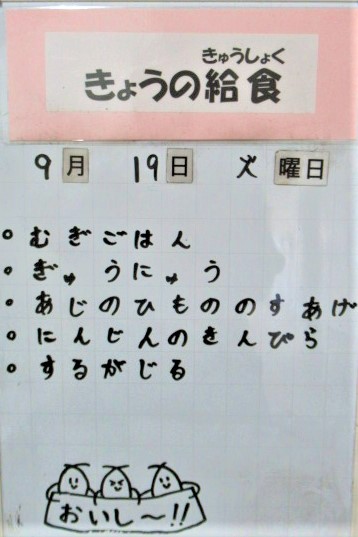 きゅうしょく
きょうの給食
9月 19日 火曜日
。むぎごはん
。ぎゅうにゅう
。あじのひもののすあげ
。にんじんのきんぴら
。するがじる
おいし～!!